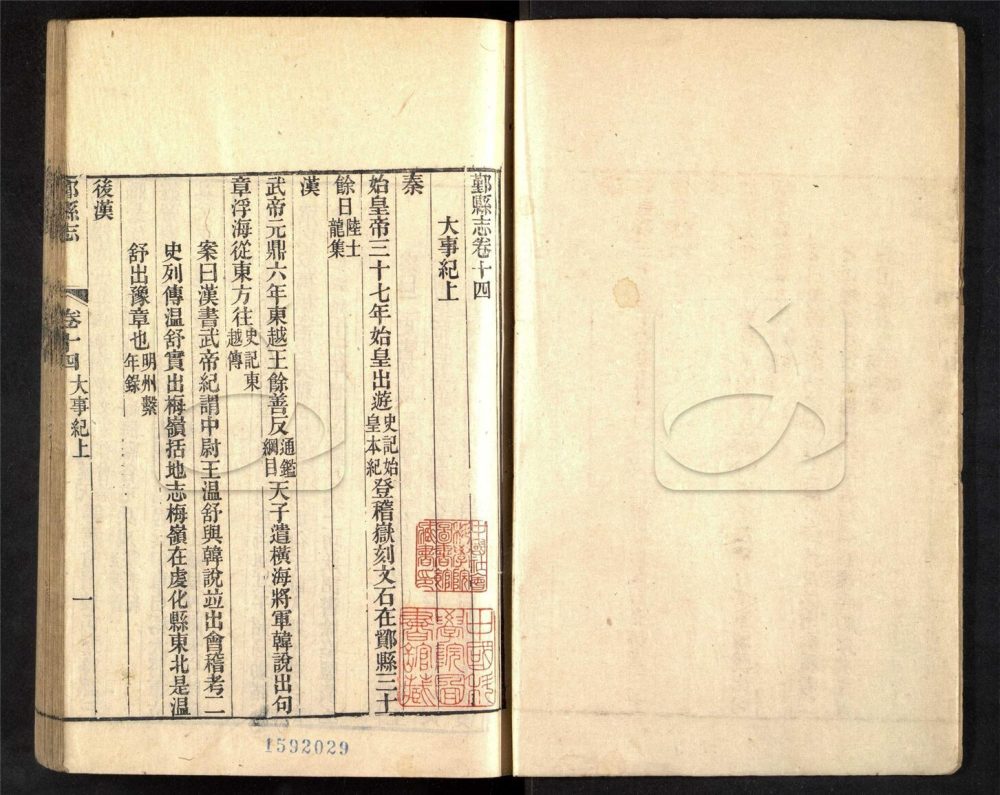 鄞縣志卷十四
大事紀上
秦
始皇帝三十七年始皇出遊史記始皇本紀登稽嶽刻文石在鄮縣三十
餘日陸士龍集
漢
武帝元鼎六年東越王餘善反通鑑綱目天子遣橫海將軍韓說出句
章浮海從東方往史記東越傳
案曰漢書武帝紀謂中尉王溫舒與韓說並出會稽考二
史列傳溫舒實出梅嶺括地志梅嶺在虔化縣東北是溫
舒出豫章也明州繫年錄
後漢
鄞縣志
卷十四
大事紀上
一
中國社會科學院圖書館藏書印
中國科學院圖書館藏
1592029